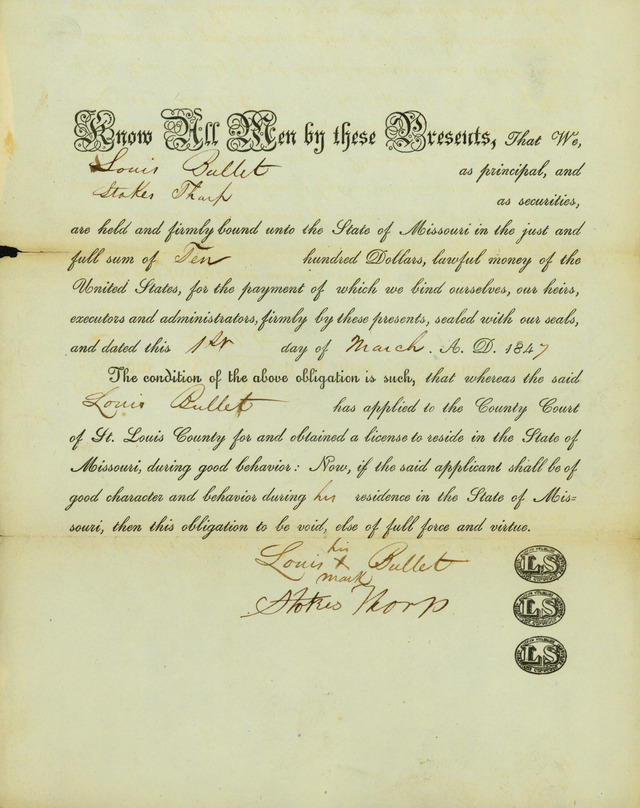 Know All Men by these Presents, That We,
Louis Bullet as principal, and
Stokes Thorp as securities,
are held and firmly bound unto the State of Missouri in the just and
full sum of Ten hundred Dollars, lawful money of the
United States, for the payment of which we bind ourselves, our heirs,
executors and administrators, firmly by these presents, sealed with our seals,
and dated this 1st day of March. A. D. 1847
The condition of the above obligation is such, that whereas the said
Louis Bullet has applied to the County Court
of St. Louis County for and obtained a license to reside in the State of
Missouri, during good behavior: Now, if the said applicant shall be of
good character and behavior during his residence in the State of Mis=
souri, then this obligation to be void, else of full force and virtue.
his
Louis x Bullet
mark
Stokes Thorp
LS
LS
LS